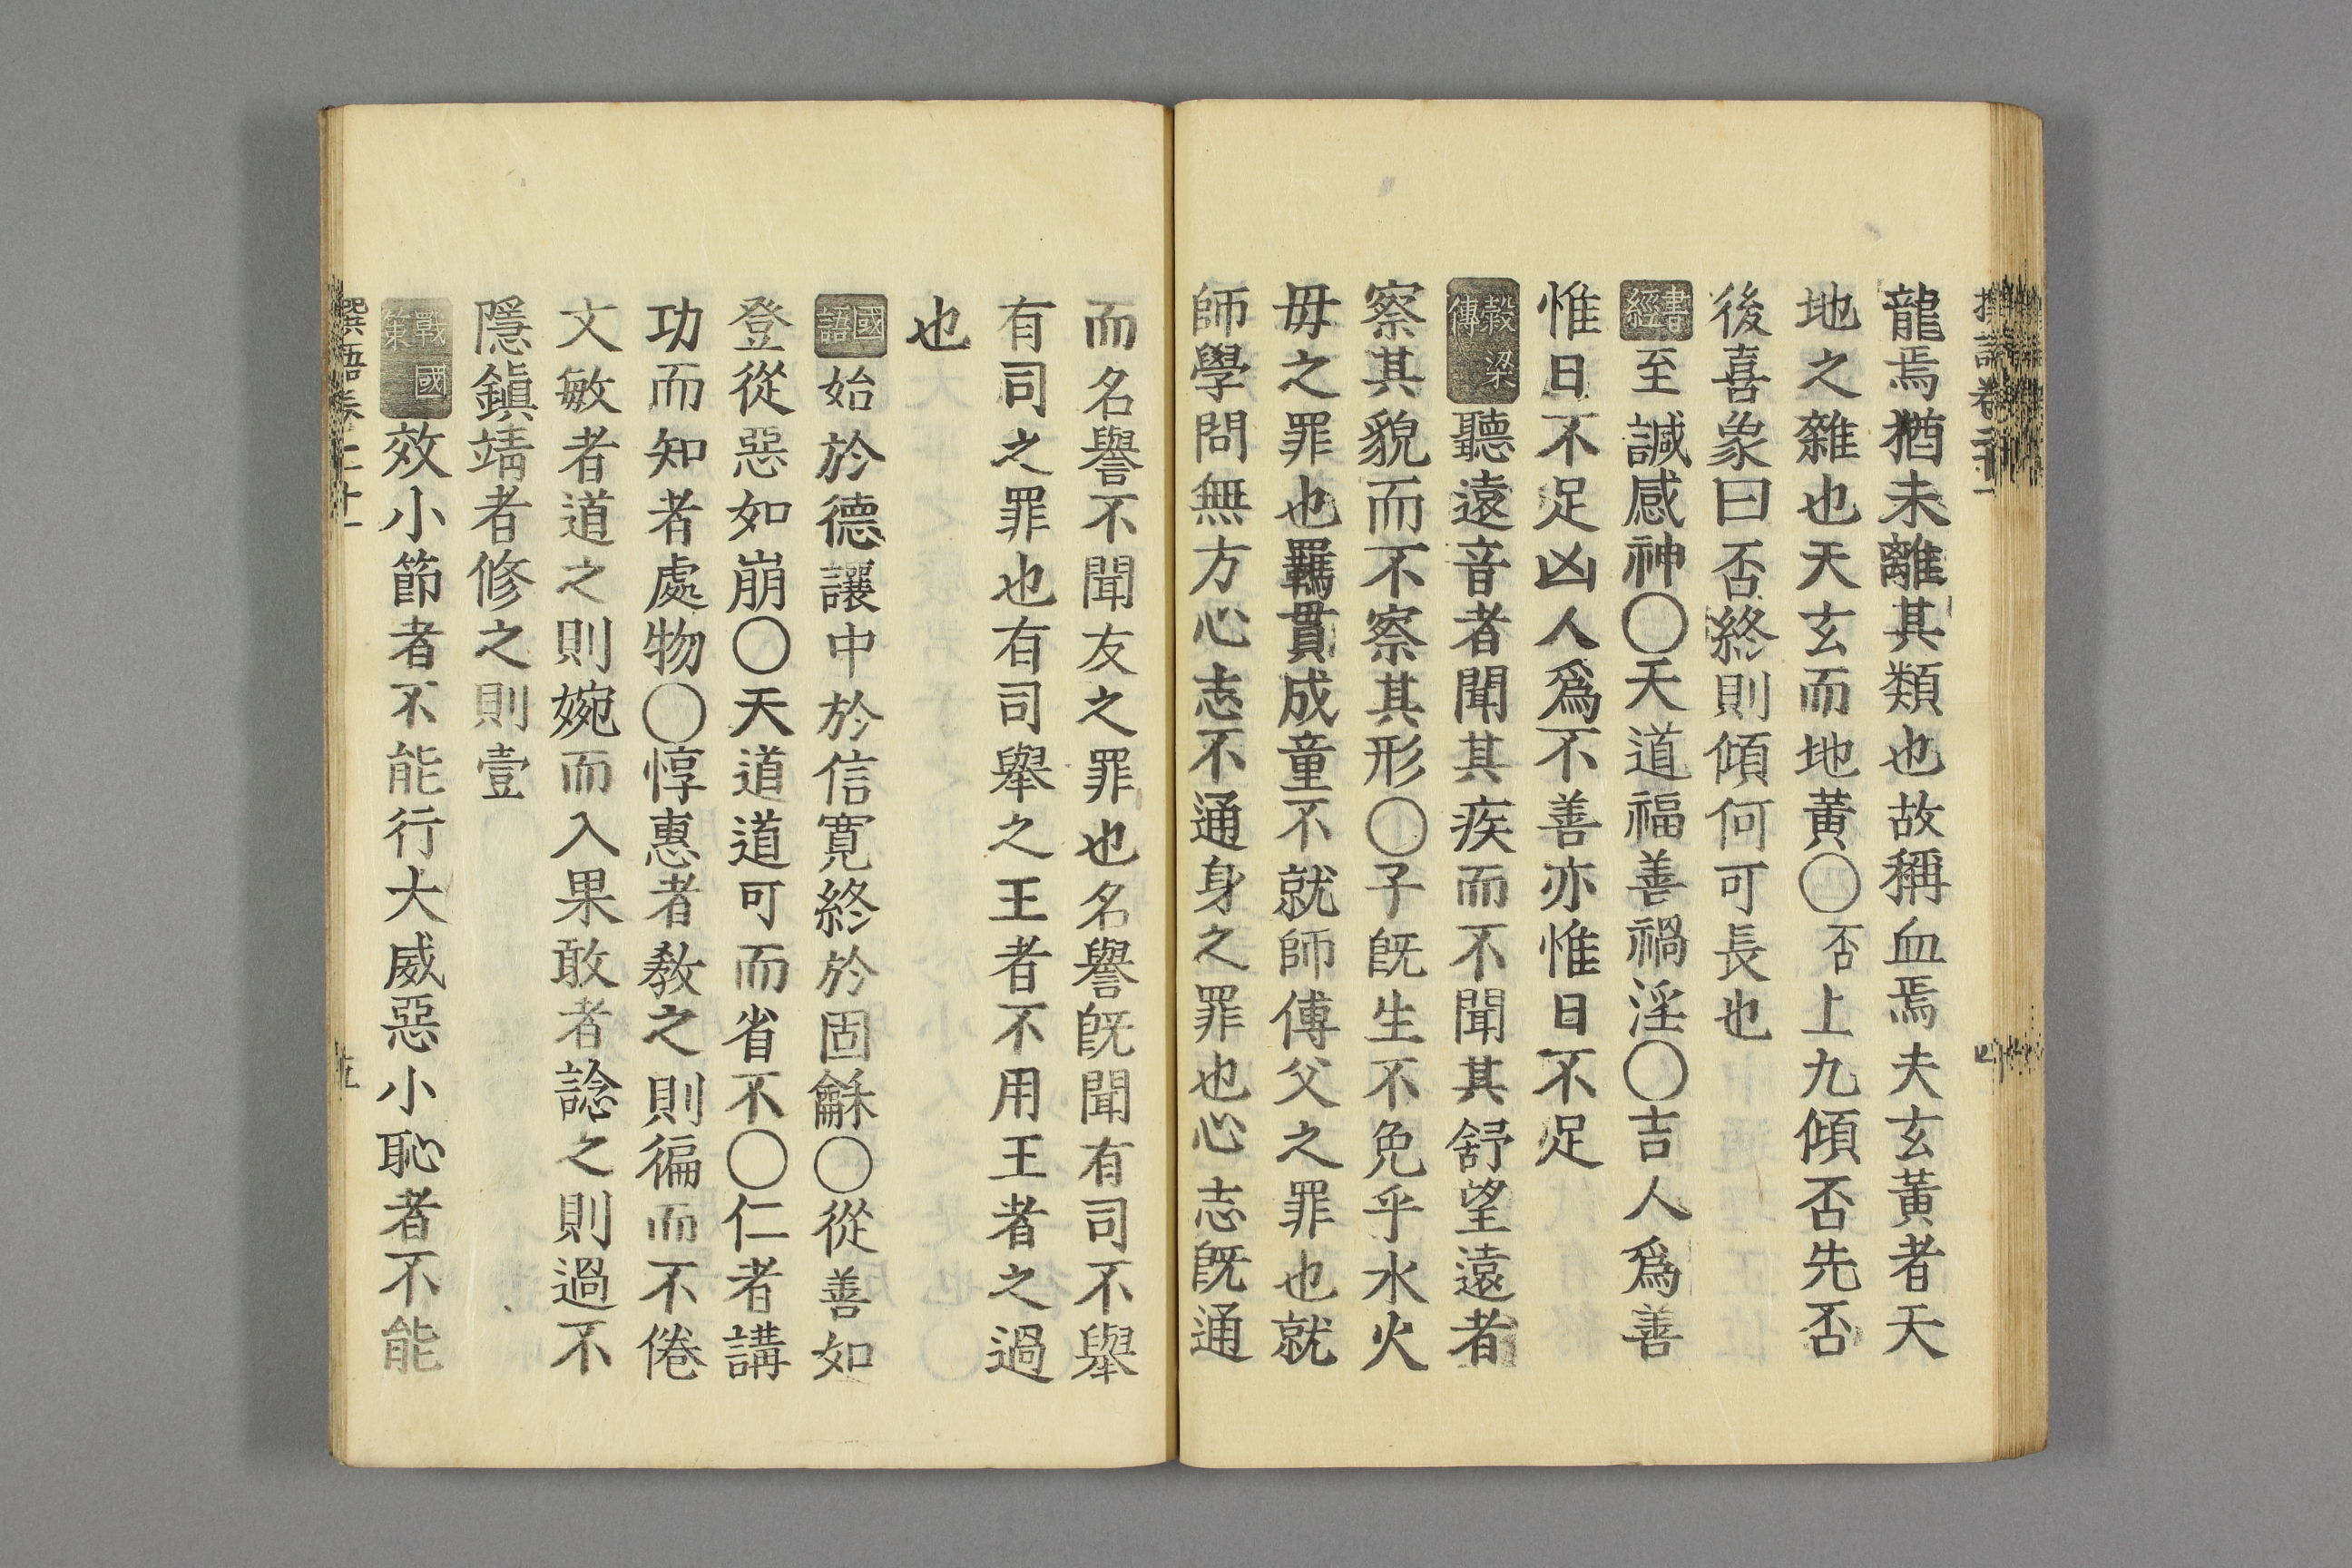 撰語卷二十一
四
龍焉猶未離其類也故稱血焉夫玄黃者天
地之雜也天玄而地黃〇否上九傾否先否
後喜象曰否終則傾何可長也
書經至諴感神〇天道福善禍淫〇吉人爲善
惟日不足凶人爲不善亦惟日不足
穀梁傳聽遠音者聞其疾而不聞其舒望遠者
察其貌而不察其形〇子旣生不免乎水火
毋之罪也羈貫成童不就師傅父之罪也就
師學問無方心志不通身之罪也心志旣通
而名譽不聞友之罪也名譽旣聞有司不舉
有司之罪也有司舉之王者不用王者之過
也
國語始於德讓中於信寬終於固龢〇從善如
登從惡如崩〇天道道可而省不〇仁者講
功而知者處物〇惇惠者敎之則徧而不倦
文敏者道之則婉而入果敢者諗之則過不
隱鎭靖者修之則壹
戰國策效小節者不能行大威惡小恥者不能
撰語卷二十一
五